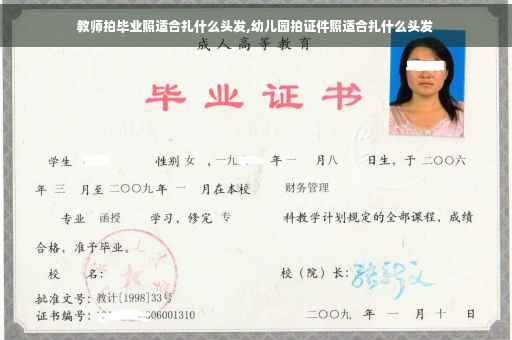 教师拍毕业照适合扎什么头发,幼儿园拍证件照适合扎什么头发
成人高等教育
毕业证书
学生 性别 女 ,一九 年一 月八 日生，于二〇〇六
年 三 月至二〇〇九年 一 月在本校 财务管理
专业 函授 学习，修完 专 科教学计划规定的全部课程，成绩
合格，准予毕业。
校 名： 校（院）长：
批准文号：教计[1998]33号
证书编号： 06001310 二〇〇九 年 一 月 十 日